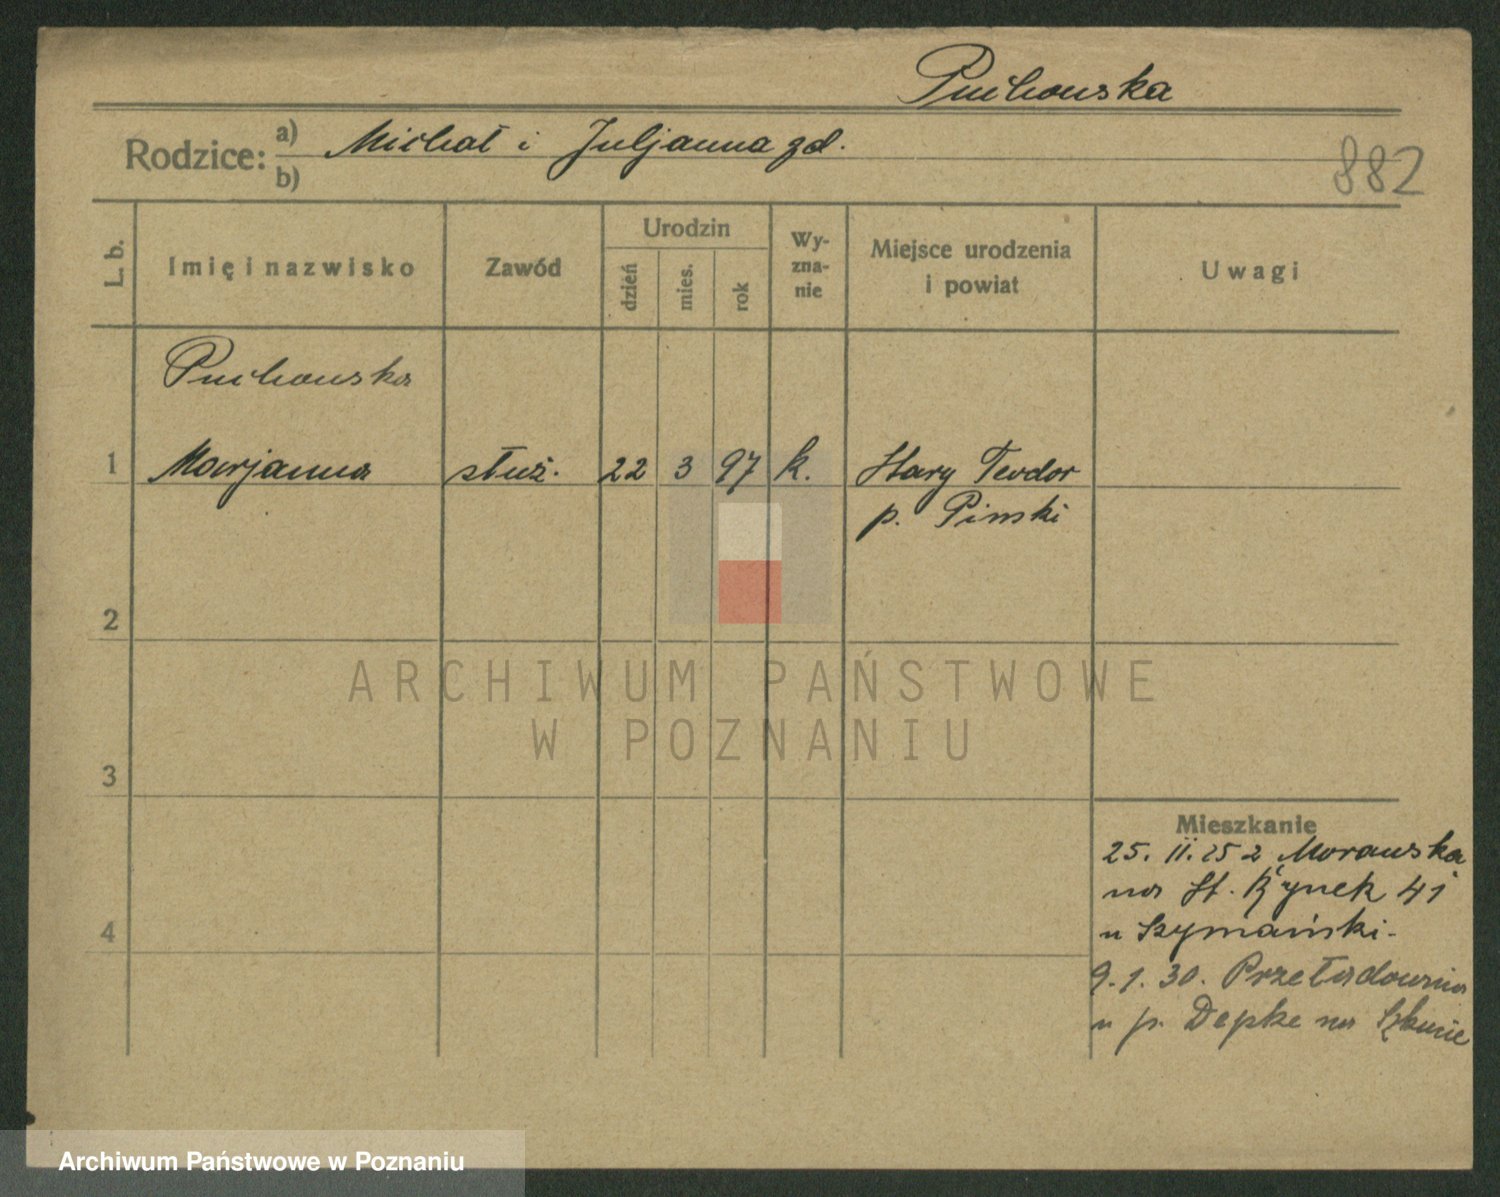 Puchowska
Rodzice: a) Michał i Juljanna zd.
b)
882
L. b.
Imię i nazwisko
Zawód
Urodzin
dzień
mies.
rok
Wy-
zna-
nie
Miejsce urodzenia
i powiat
Uwagi
Puchowska
1 Marjanna służ. 22 3 97 k. Stary Teodor
p. Pinski
2
ARCHIWUM PAŃSTWOWE
W POZNANIU
3
Mieszkanie
25. II. 25 z Morawska
na St. Rynek 41
4
u Szymański.
9.1.30. Przeładowana
u p. Depke na
Archiwum Państwowe w Poznaniu